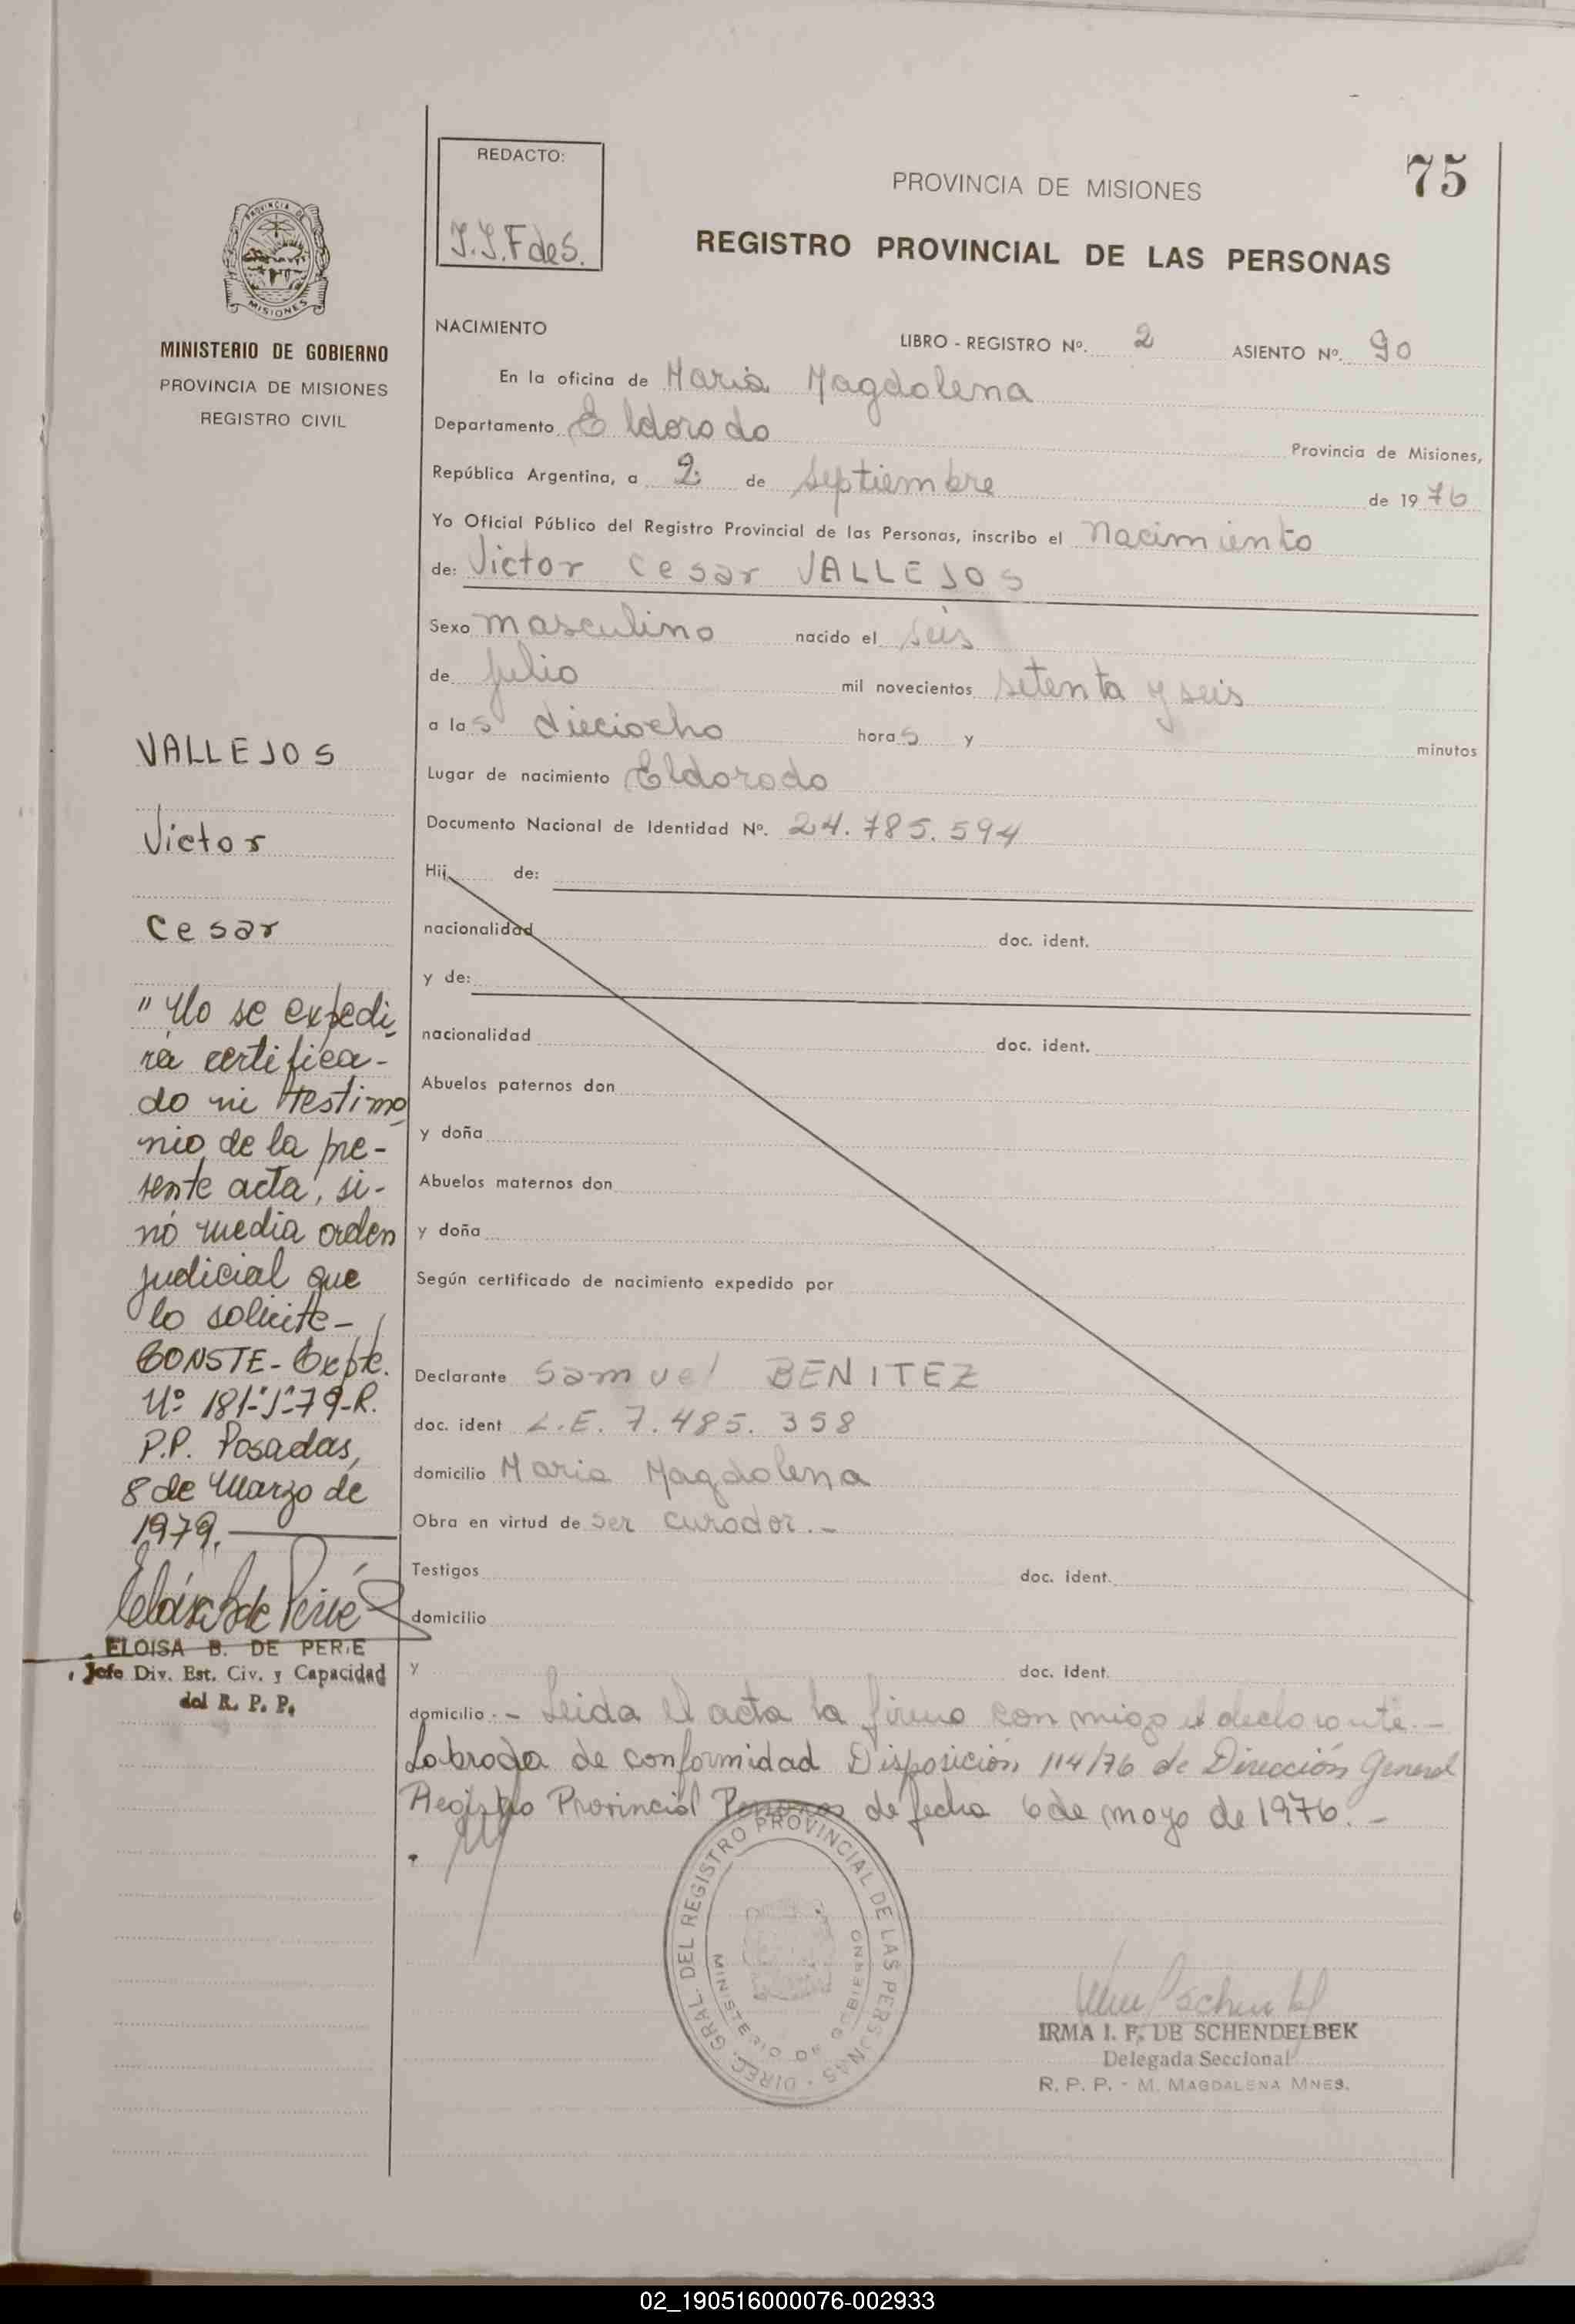 75
REDACTO:
I.I.F de S.
PROVINCIA DE MISIONES
REGISTRO PROVINCIAL DE LAS PERSONAS
PROVINCIA DE
MISIONES
MINISTERIO DE GOBIERNO
PROVINCIA DE MISIONES
REGISTRO CIVIL
NACIMIENTO
LIBRO - REGISTRO Nº. 2 ASIENTO Nº. 90
En la oficina de Maria Magdalena
Departamento Eldorado Provincia de Misiones,
República Argentina, a 2 de Septiembre de 1976
Yo Oficial Público del Registro Provincial de las Personas, inscribo el Nacimiento
de: Victor Cesar VALLEJOS
Sexo masculino nacido el seis
de julio mil novecientos setenta y seis
a las dieciocho horas y minutos
Lugar de nacimiento Eldorado
Documento Nacional de Identidad Nº. 24.785.594
Hij de:
nacionalidad doc. ident.
y de:
nacionalidad doc. ident.
Abuelos paternos don
y doña
Abuelos maternos don
y doña
Según certificado de nacimiento expedido por
Declarante Samuel BENITEZ
doc. ident L.E. 7.485.358
domicilio Maria Magdalena
Obra en virtud de ser curador.-
Testigos doc. ident.
domicilio
y doc. ident.
domicilio.- Leida el acta la firma conmigo el declarante.-
Labrada de conformidad Disposición 114/76 de Dirección General
Registro Provincial Personas de fecha 6 de mayo de 1976.-
VALLEJOS
Victor
Cesar
"No se expedi
rá certifica-
do ni testimo
nio de la pre-
sente acta, si-
nó media orden
judicial que
lo solicite-
CONSTE- Expte.
Nº 181-J-79-R.
P.P. Posadas,
8 de Marzo de
1979.
ELOISA B. DE PERIE
Jefe Div. Est. Civ. y Capacidad
del R. P. P.
DIREC. GRAL. DEL REGISTRO PROVINCIAL DE LAS PERSONAS
MINISTERIO DE GOBIERNO
IRMA I. F. DE SCHENDELBEK
Delegada Seccional
R. P. P. - M. MAGDALENA MNES.
02_190516000076-002933